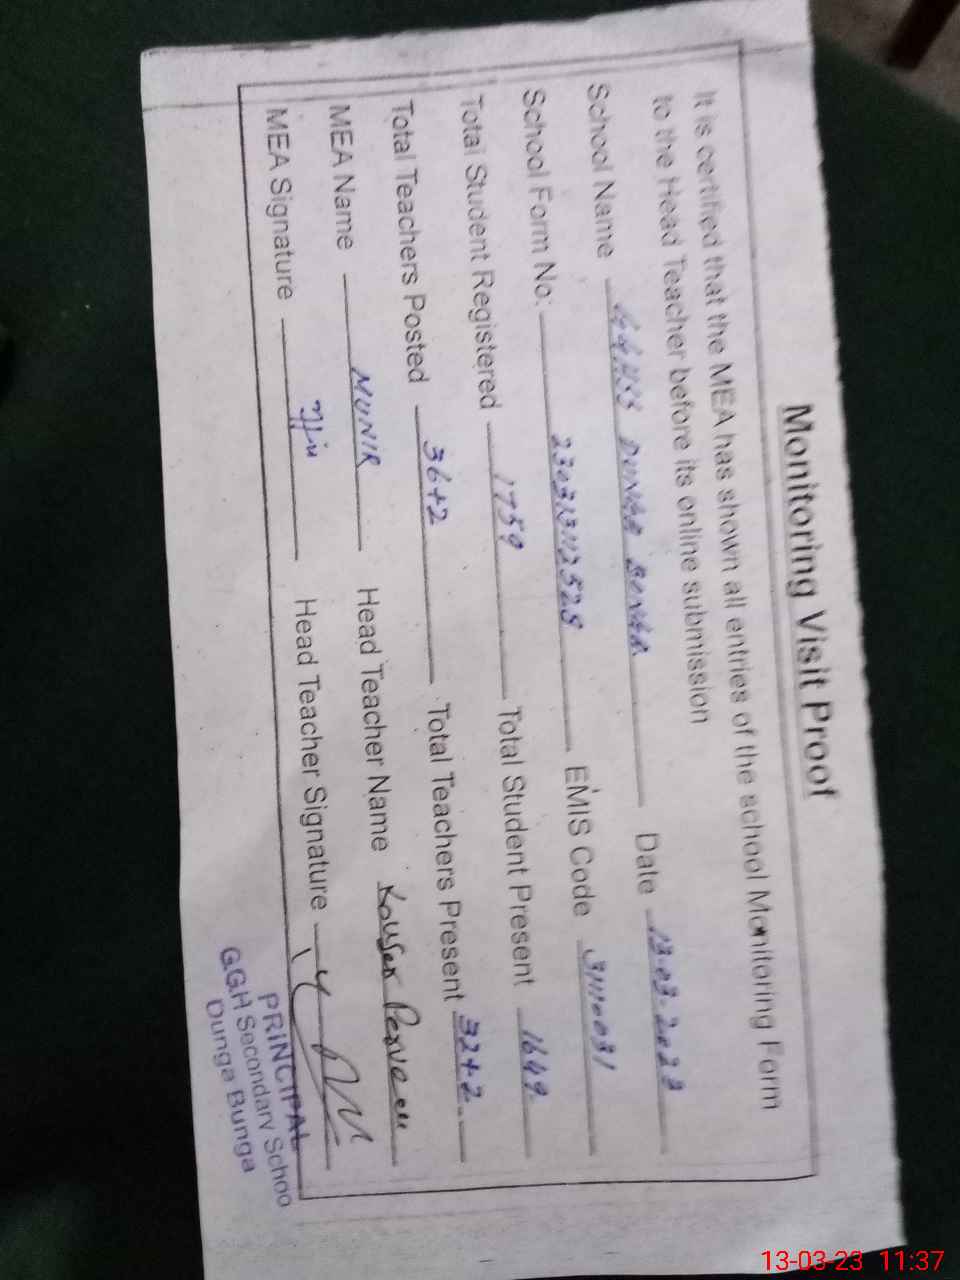 Monitoring Visit Proof
It is certified that the MEA has shown all entries of the school Monitoring Form
to the Head Teacher before its online submission
School Name GGHSS DUNGA BUNGA Date 13.03.2023
School Form No: EMIS Code 31110031
Total Student Registered 1759 Total Student Present 1649
Total Teachers Posted 36+2 Total Teachers Present 32+2
MEA Name MUNIR Head Teacher Name Kouser Perveen
MEA Signature Head Teacher Signature
PRINCIPAL
G.G.H Secondary Schoo
Dunga Bunga
13-03-23 11:37